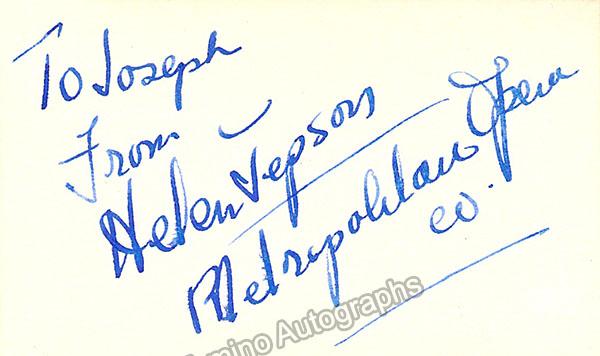 To Joseph
From
Helen Jepson
Metropolitan Opera
co.
Tamino Autographs